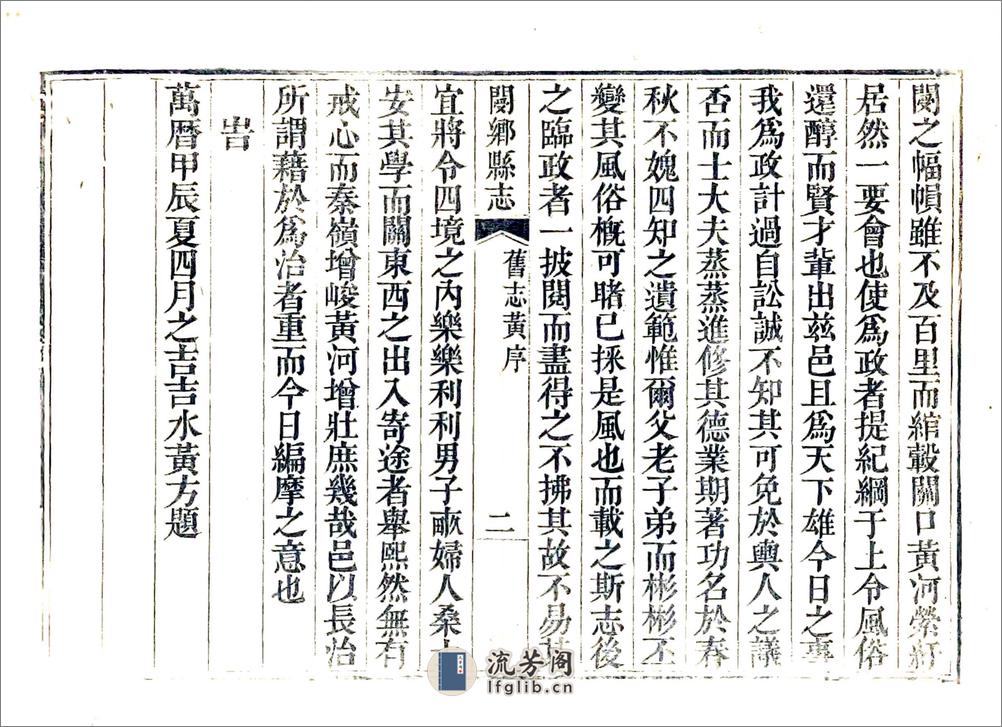 閿之幅幀雖不及百里而綰轂關口黃河縈紆
居然一要會也使爲政者提紀綱于上令風俗
還醇而賢才輩出兹邑且爲天下雄今日之事
我爲政計過自訟誠不知其可免於輿人之議
否而士大夫蒸蒸進修其德業期著功名於春
秋不媿四知之遺範惟爾父老子弟而彬彬丕
變其風俗槪可睹已採是風也而載之斯志後
之臨政者一披閱而盡得之不拂其故不易其
閿鄉縣志
舊志黃序
二
宜將令四境之內樂樂利利男子畝婦人桑士
安其學而關東西之出入寄途者舉熙然無有
戒心而秦嶺增峻黃河增壯庶幾哉邑以長治
所謂藉於爲治者重而今日編摩之意也
旹
萬曆甲辰夏四月之吉吉水黃方題
流芳阁
lfglib.cn